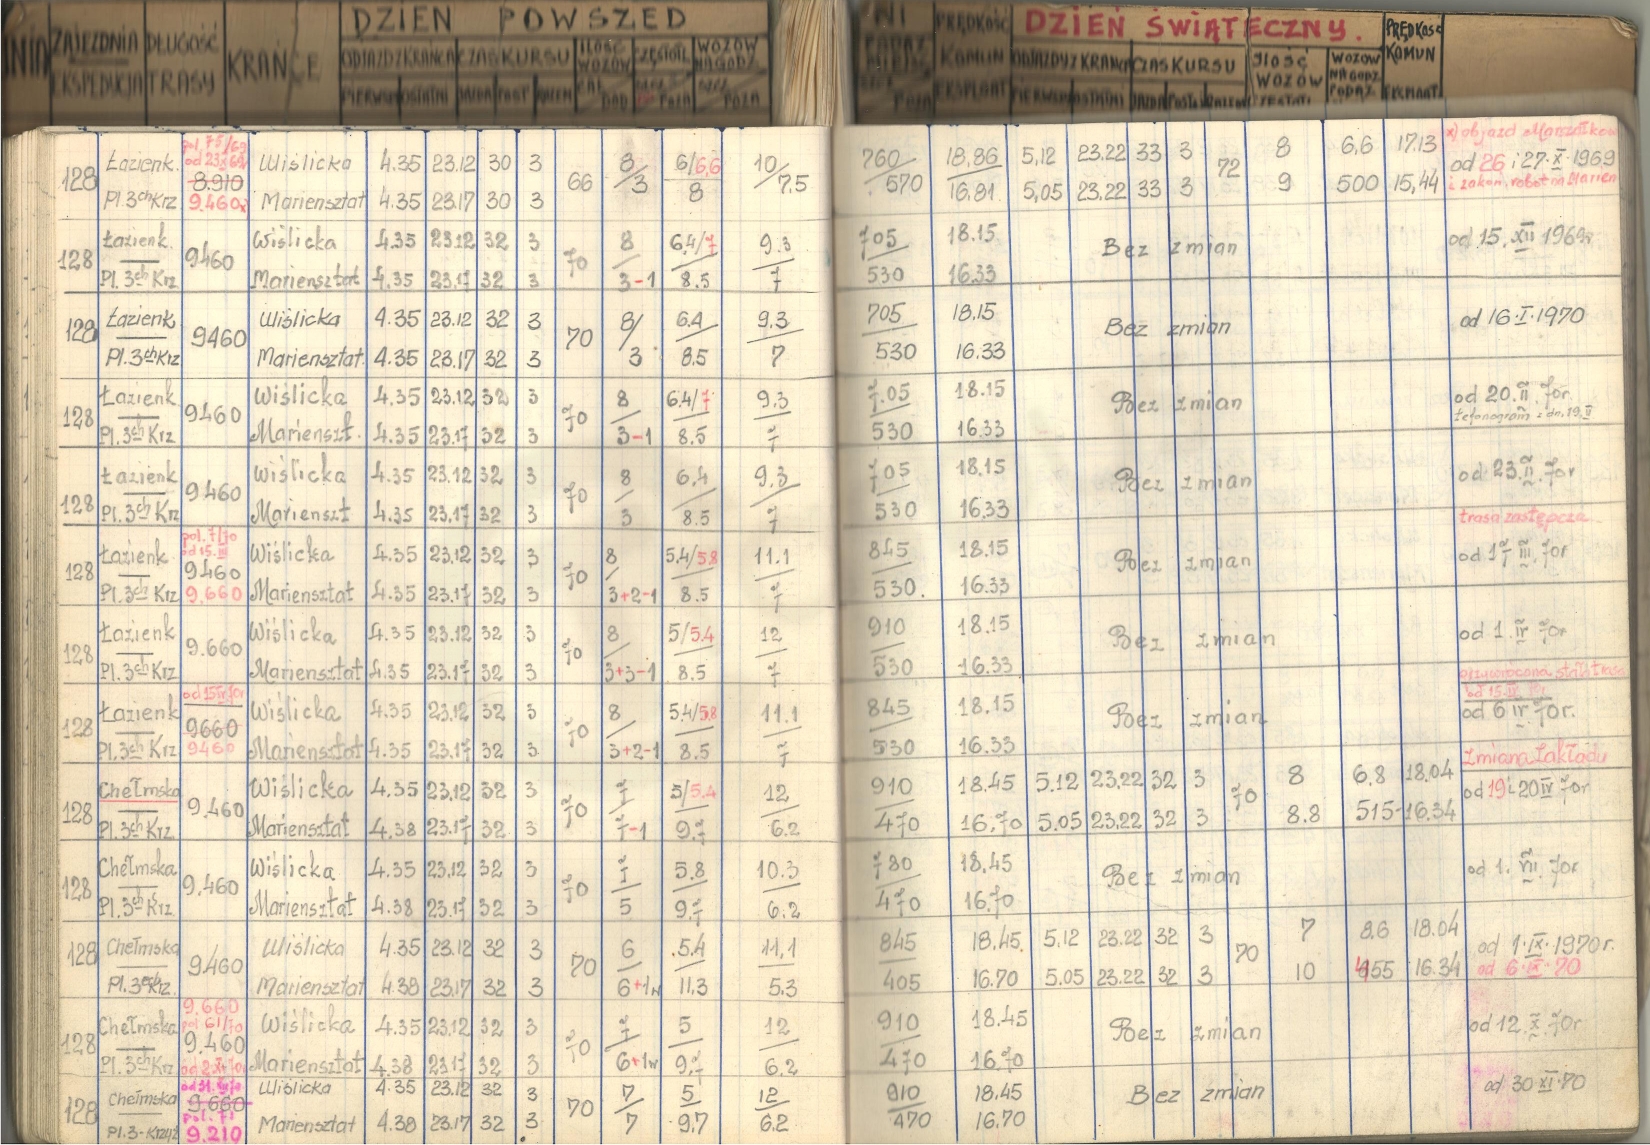 DZIEŃ POWSZED
NI PRĘDKOŚĆ DZIEŃ ŚWIĄTECZNY. PRĘDKOŚĆ
ZAJEZDNIA DŁUGOŚĆ KRAŃCE ODJAZD Z KRAŃCA CZAS KURSU ILOŚĆ WOZÓW CZĘSTOTL WOZÓW NA GODZ.
EKSPEDYCJA TRASY PIERWSZY OSTATNI JAZDA POST
KOMUN ODJAZDY Z KRAŃCA CZAS KURSU ILOŚĆ WOZÓW WOZÓW NA GODZ. KOMUN
EKSPLOAT PIERWSZY OSTATNI JAZDA POST EKSPLOAT.
128 Łazienk. pol. 75/69 od 23 x 69 8.910 Wiślicka 4.35 23.12 30 3 66 8/3 6/6,6 10/7,5 760/570 18,86 5,12 23.22 33 3 72 8 6,6 17.13 x) objazd Marszałkow od 26 i 27.X.1969
Pl. 3ch Krz 9.460x Mariensztat 4.35 23.17 30 3 8 16,81 5,05 23.22 33 3 9 500 15,44 i zakoń. robot na Marien
128 Łazienk. 9460 Wiślicka 4.35 23.12 32 3 70 8 6,4/7 9.3 705 18.15 Bez zmian od 15. XII 1969r
Pl. 3ch Krz Mariensztat 4.35 23.17 32 3 3-1 8.5 7 530 16.33
128 Łazienk. 9460 Wiślicka 4.35 23.12 32 3 70 8/ 6.4 9.3 705 18.15 Bez zmian od 16.I.1970
Pl. 3ch Krz Mariensztat 4.35 23.17 32 3 3 8.5 7 530 16.33
128 Łazienk 9460 Wiślicka 4.35 23.12 32 3 70 8 6.4/7 9.3 7.05 18.15 Bez zmian od 20.II.70r. telefonogram z dn. 19.II
Pl. 3ch Krz Marienszt. 4.35 23.17 32 3 3-1 8.5 7 530 16.33
128 Łazienk 9.460 Wiślicka 4.35 23.12 32 3 70 8 6,4 9.3 705 18.15 Bez zmian od 23.II.70r
Pl. 3ch Krz Marienszt 4.35 23.17 32 3 3 8.5 7 530 16.33 trasa zastępcza
128 Łazienk. pol. 7/70 od 15. III 9460 Wiślicka 4.35 23.12 32 3 70 8 5.4/5.8 11.1 845 18.15 Bez zmian od 17 III. 70r
Pl. 3ch Krz 9.660 Mariensztat 4.35 23.17 32 3 3+2-1 8.5 7 530. 16.33
128 Łazienk 9.660 Wiślicka 4.35 23.12 32 3 70 8 5/5.4 12 910 18.15 Bez zmian od 1. IV 70r
Pl. 3ch Krz Mariensztat 4.35 23.17 32 3 3+3-1 8.5 7 530 16.33 przywrócona stała trasa
128 Łazienk od 15 IV 70r 9660 Wiślicka 4.35 23.12 32 3 70 8 5.4/5.8 11.1 845 18.15 Bez zmian od 15. IV 70r od 6 IV 70r.
Pl. 3ch Krz 9460 Mariensztat 4.35 23.17 32 3 3+2-1 8.5 7 530 16.33 Zmiana Zakładu
128 Chełmska 9.460 Wiślicka 4.35 23.12 32 3 70 7 5/5.4 12 910 18.45 5.12 23.22 32 3 70 8 6.8 18.04 od 19 i 20 IV 70r
Pl. 3ch Krz Mariensztat 4.38 23.17 32 3 7-1 9.7 6.2 470 16.70 5.05 23.22 32 3 8.8 515 16.34
128 Chełmska 9.460 Wiślicka 4.35 23.12 32 3 70 7 5.8 10.3 780 18.45 Bez zmian od 1. VII. 70r
Pl. 3ch Krz. Mariensztat 4.38 23.17 32 3 5 9.7 6.2 470 16.70
128 Chełmska 9.460 Wiślicka 4.35 23.12 32 3 70 6 5.4 11,1 845 18.45. 5.12 23.22 32 3 70 7 8.6 18.04 od 1.IX.1970r.
Pl. 3ch Krz. Mariensztat 4.38 23.17 32 3 6+1w 11,3 5.3 405 16.70 5.05 23.22 32 3 10 455 16.34 od 6.IX.70
128 Chełmska 9.660 pol. 61/70 9.460 Wiślicka 4.35 23.12 32 3 70 7 5 12 910 18.45 Bez zmian od 12. X. 70r
Pl. 3ch Krz Mariensztat 4.38 23.17 32 3 6+1w 9.7 6.2 470 16.70
128 Chełmska 9.660 Wiślicka 4.35 23.12 32 3 70 7 5 12 910 18.45 Bez zmian od 30 XI 70
Pl. 3-Krzyży 9.210 Mariensztat 4.38 23.17 32 3 7 9.7 6.2 470 16.70